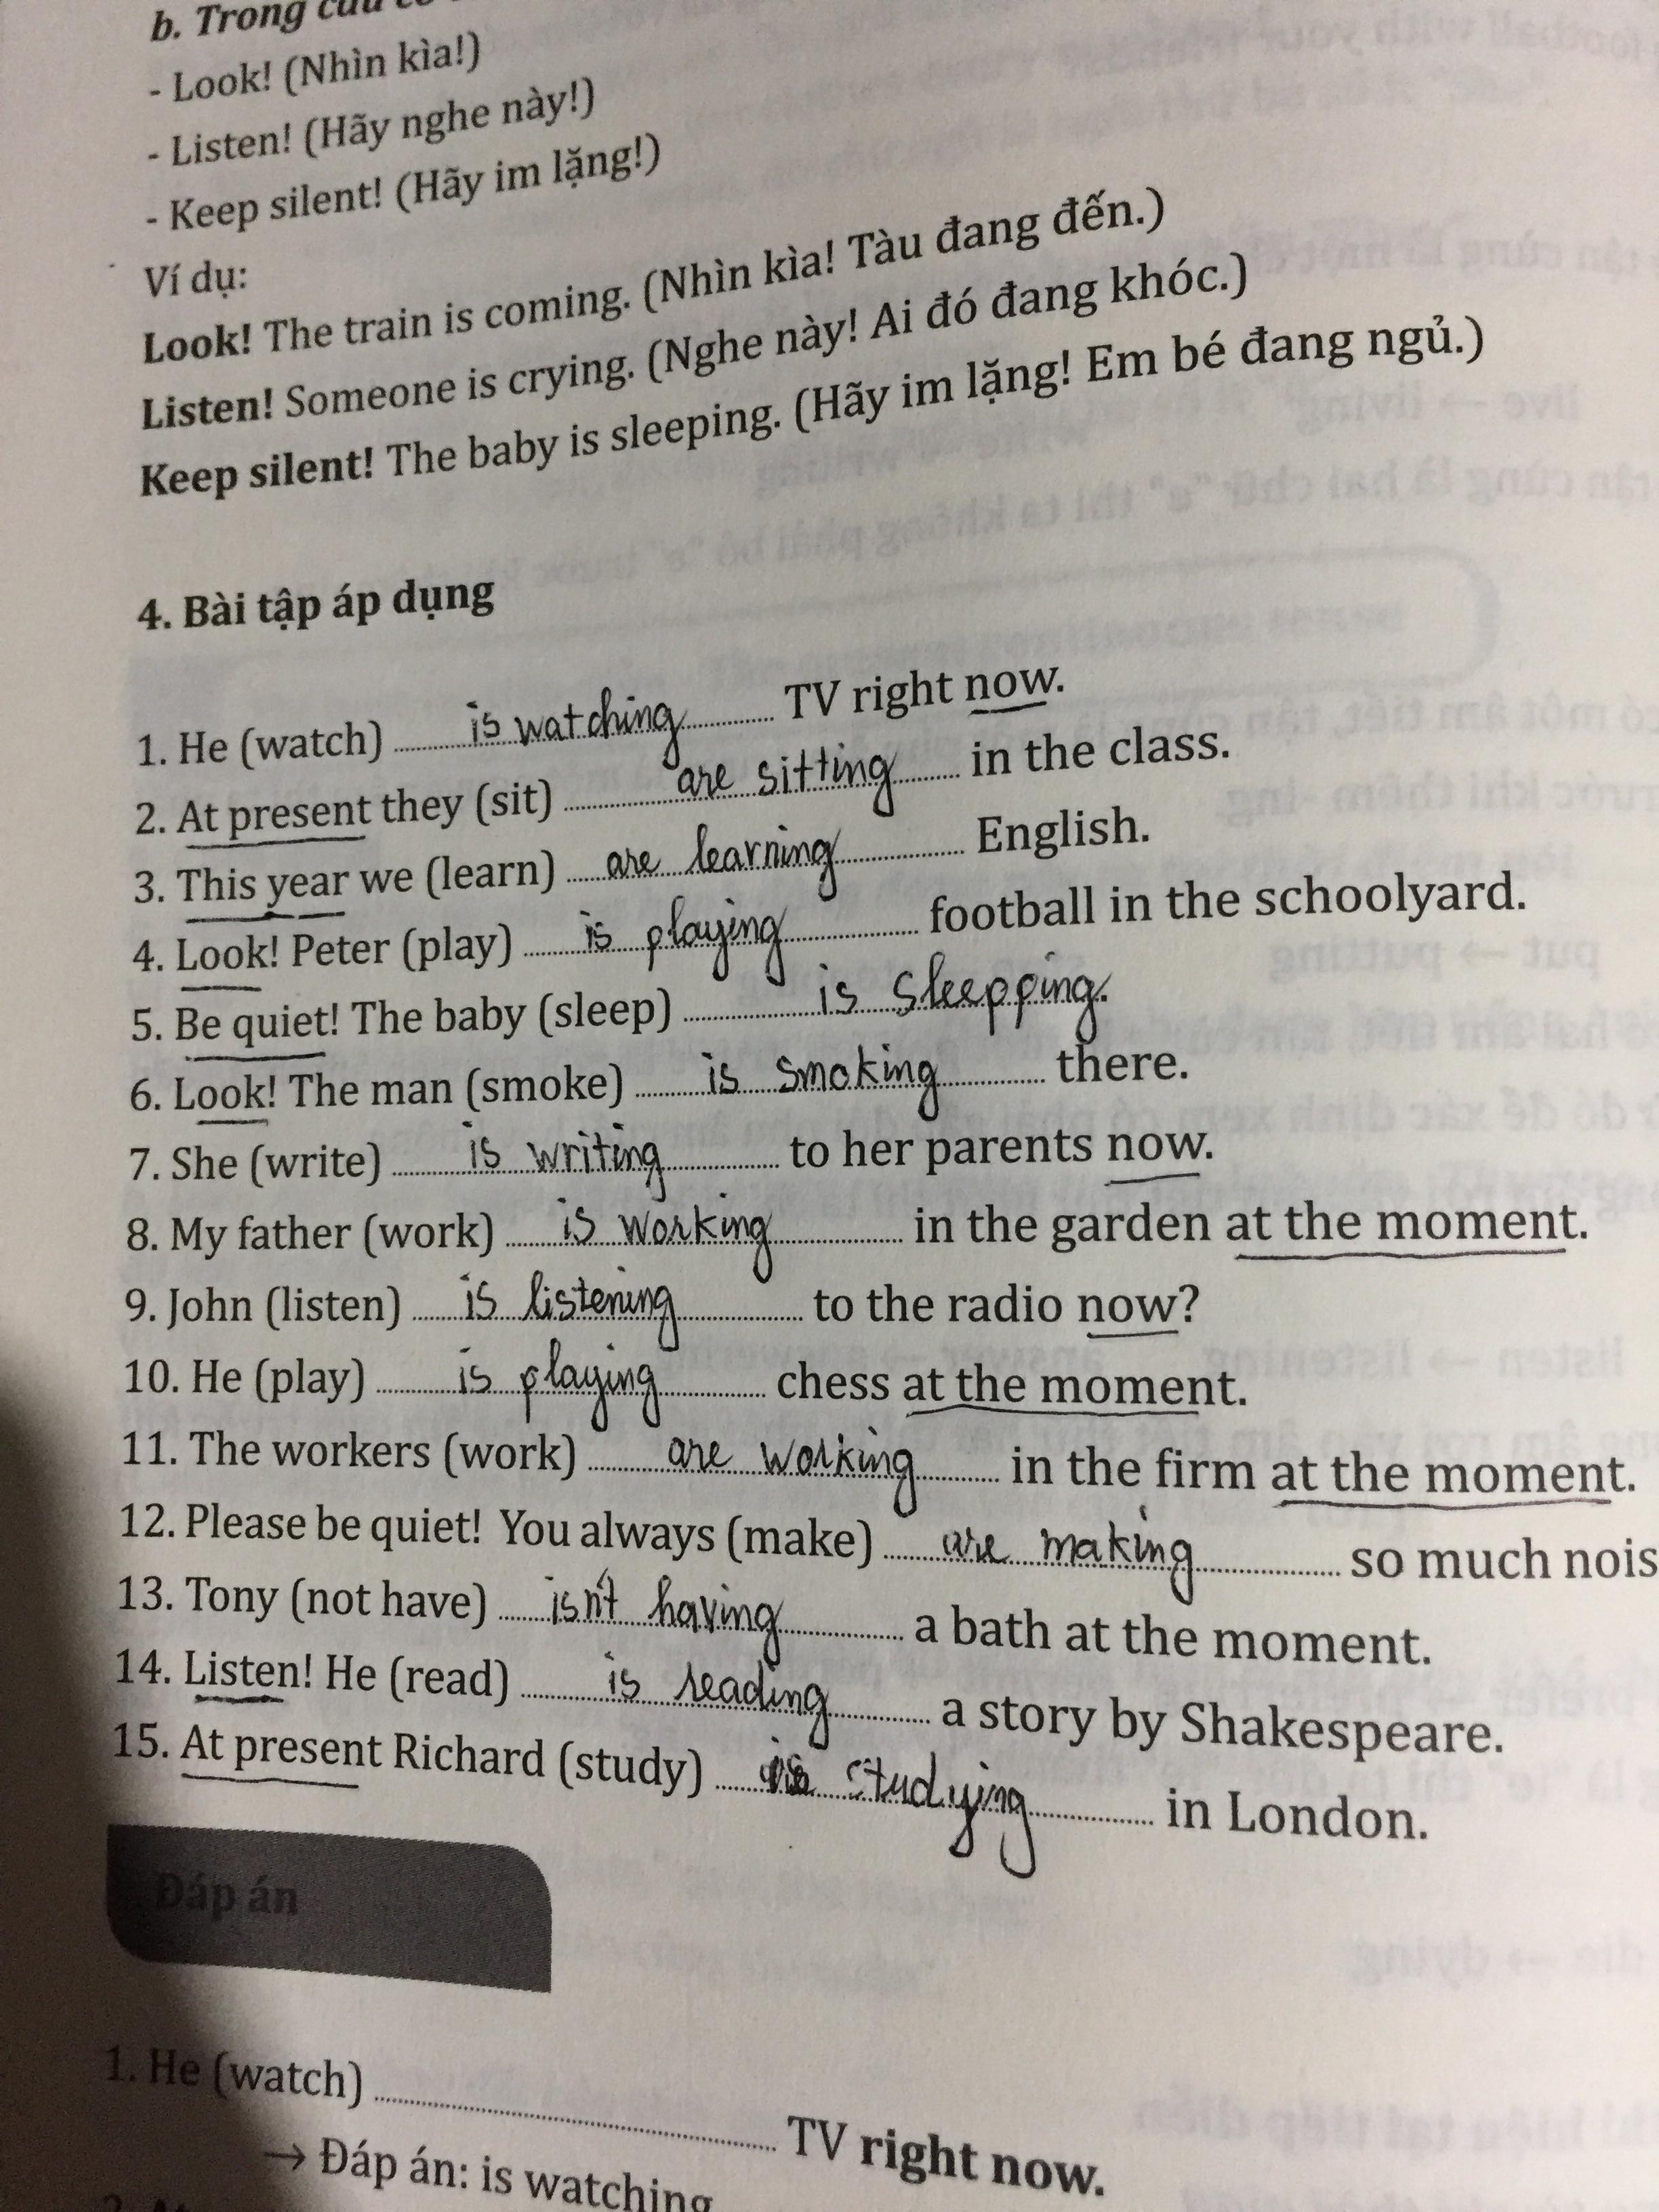 b. Trong câu
- Look! (Nhìn kìa!)
- Listen! (Hãy nghe này!)
- Keep silent! (Hãy im lặng!)
Ví dụ:
Look! The train is coming. (Nhìn kìa! Tàu đang đến.)
Listen! Someone is crying. (Nghe này! Ai đó đang khóc.)
Keep silent! The baby is sleeping. (Hãy im lặng! Em bé đang ngủ.)
4. Bài tập áp dụng
1. He (watch) is watching TV right now.
2. At present they (sit) are sitting in the class.
3. This year we (learn) are learning English.
4. Look! Peter (play) is playing football in the schoolyard.
5. Be quiet! The baby (sleep) is sleepping.
6. Look! The man (smoke) is smoking there.
7. She (write) is writing to her parents now.
8. My father (work) is working in the garden at the moment.
9. John (listen) is listening to the radio now?
10. He (play) is playing chess at the moment.
11. The workers (work) are working in the firm at the moment.
12. Please be quiet! You always (make) are making so much nois
13. Tony (not have) isn't having a bath at the moment.
14. Listen! He (read) is reading a story by Shakespeare.
15. At present Richard (study) is studying in London.
Đáp án
1. He (watch) TV right now.
→ Đáp án: is watching